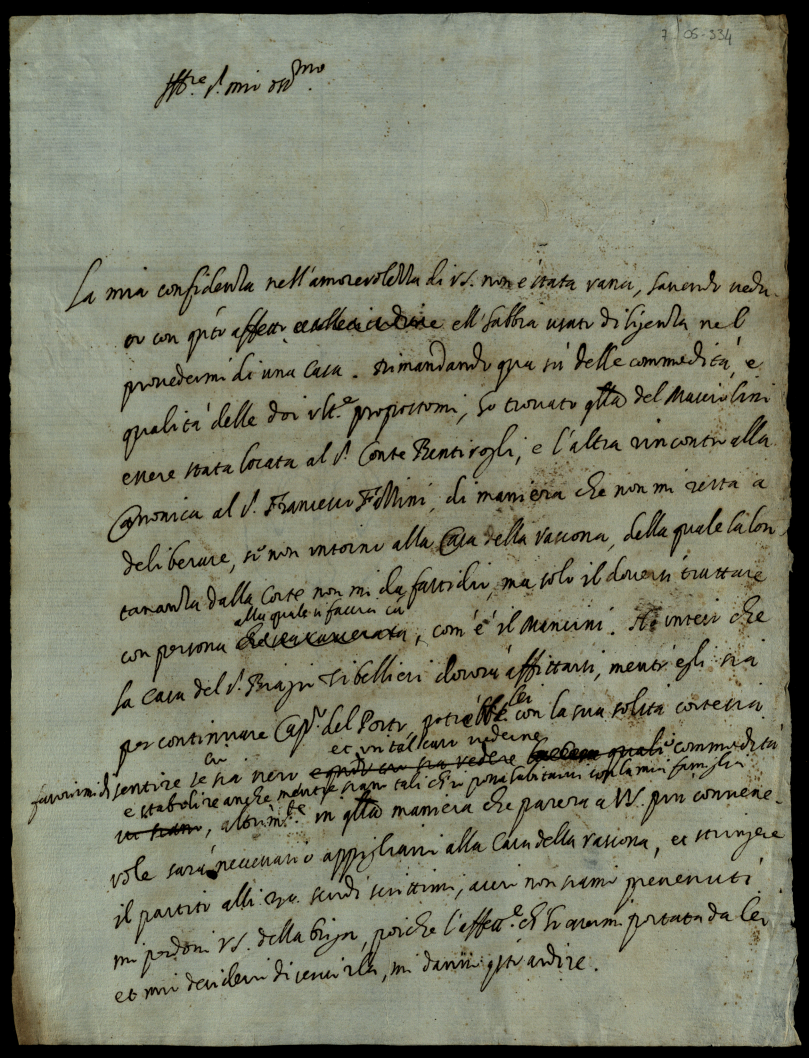 7 05-334
Ill.re S. mio oss.mo
La mia confidenza nell'amorevolezza di VS. non è stata vana, havendo vedu-
to con q.to affetto ell'habbia usato diligenza nel
provedermi di una Casa. Rimandando qua sù delle commodità, e
qualità delle doi ult.e propostomi, ho trovato q.lla del
essere stata locata al S. Conte Bentivogli, e l'altra rincontro alla
Canonica al S. Francesco, di maniera che non mi resta a
deliberare, se non intorno alla Casa della, della quale la lon-
tananza dalla Corte non mi da fastidio, ma solo il doversi trattare
alla quale si faccia
con persona, com'è il Mancini. Ho inteso che
la Casa del S. Biagio dovorà affittarsi, mentr'egli sia
per continuare Cap.o del Porto, potrebbe lei con la sua solita cortesia
et in tal caso vederne
favorirmi di sentire se ciò sia vero commodità
e stabolire anche mentre siano tali ch'io possa habitarvi con la mia famiglia
, altrim.te in q.lla maniera che parerà a VS. più convene-
vole sarà necessario appigliarsi alla Casa della, et stringere
il partito alli scudi scrittimi, acciò non siamo prevenuti
mi perdoni VS. della briga, poiche l'affett.e ch'ho sempre portata da lei
et mio desiderio di servirla, mi danno q.to ardire.